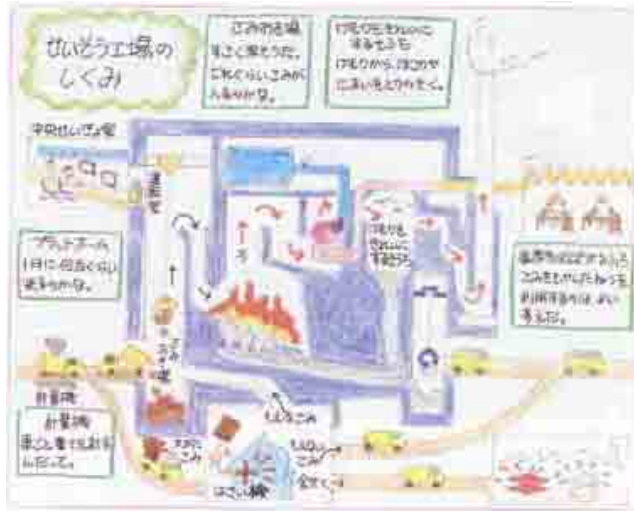 せいそう工場の
しくみ
ごみおき場
すごく深そうだ。
どれくらいごみが
入るのかな。
けむりをきれいに
するそうち
けむりから、ほこりや
においをとりのぞく。
中央せいぎょ室
プラットホーム
1日に何台ぐらい
来るのかな。
けむりを
きれいに
するそうち
ごみをもやしたねつを
利用するのは、よい
考えだ。
計量機
計量機
車ごと重さをはかる
んだって。
もえるごみ
大がたごみ
もえない
ごみ
はさい機